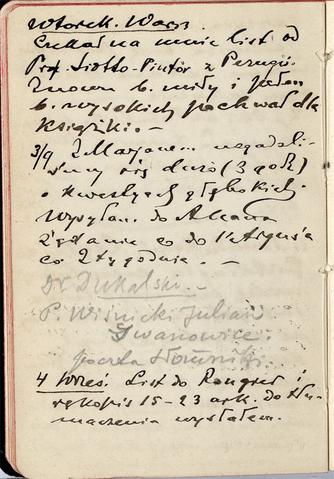 Wtorek. Warsz.
Czekał na mnie list od
Prof. Liotto-Pintór z Perugii.
Znowu b. miły i pełen
b. wysokich pochwał dla
książki. —
3/9 Z Marjanem nagadali-
śmy się dużo (3 godz)
o kwestjach głębokich.
Wysyłam do
żądanie co do
co 2 tygodnie. —
Dr. Dukalski.
P. Wiśnicki Julian
Iwanowice.
poczta Słomniki.
4 Wrześ. List do i
rękopis 15-23 ark. do tłu-
maczenia wysłałem.